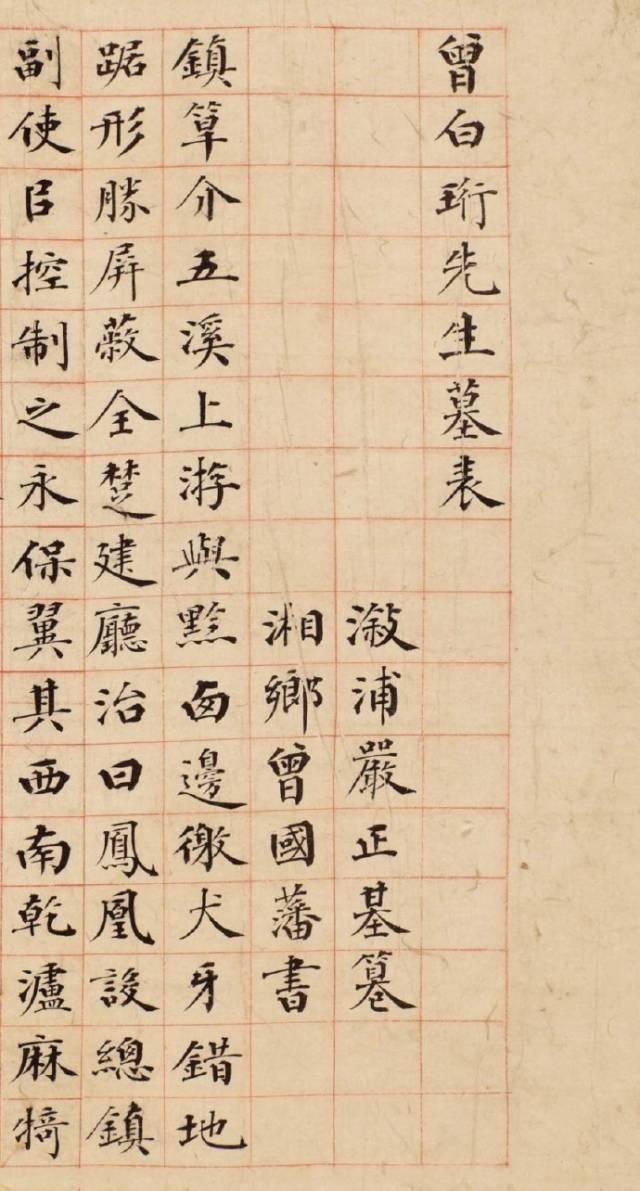 曾白珩先生墓表
漵浦嚴正基篹
湘鄉曾國藩書
鎮筸介五溪上游與黔西邊徼犬牙錯地
踞形勝屏蔽全楚建廳治曰鳳凰設總鎮
副使㠯控制之永保翼其西南乾瀘麻犄